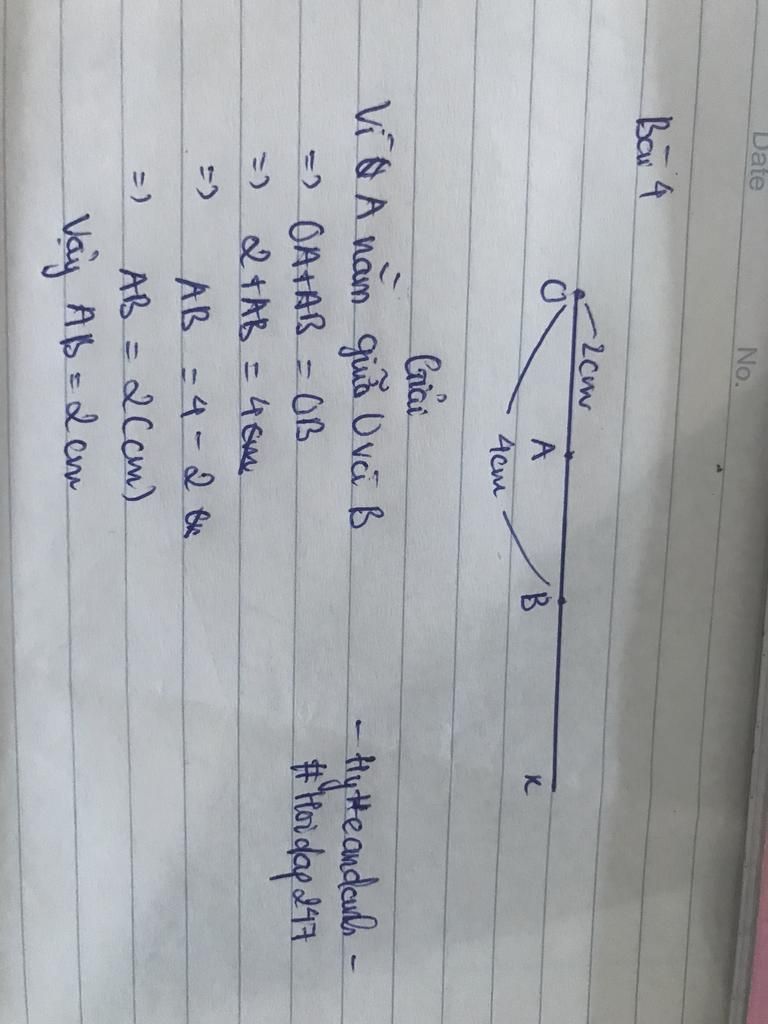 Date
No.
Bài 4
2cm
O
A
B
x
4cm
Giải
Vì A nằm giữa O và B
=> OA+AB = OB
=> 2+AB = 4
=> AB = 4-2
=> AB = 2(cm)
Vậy AB = 2cm
#Hoidap247